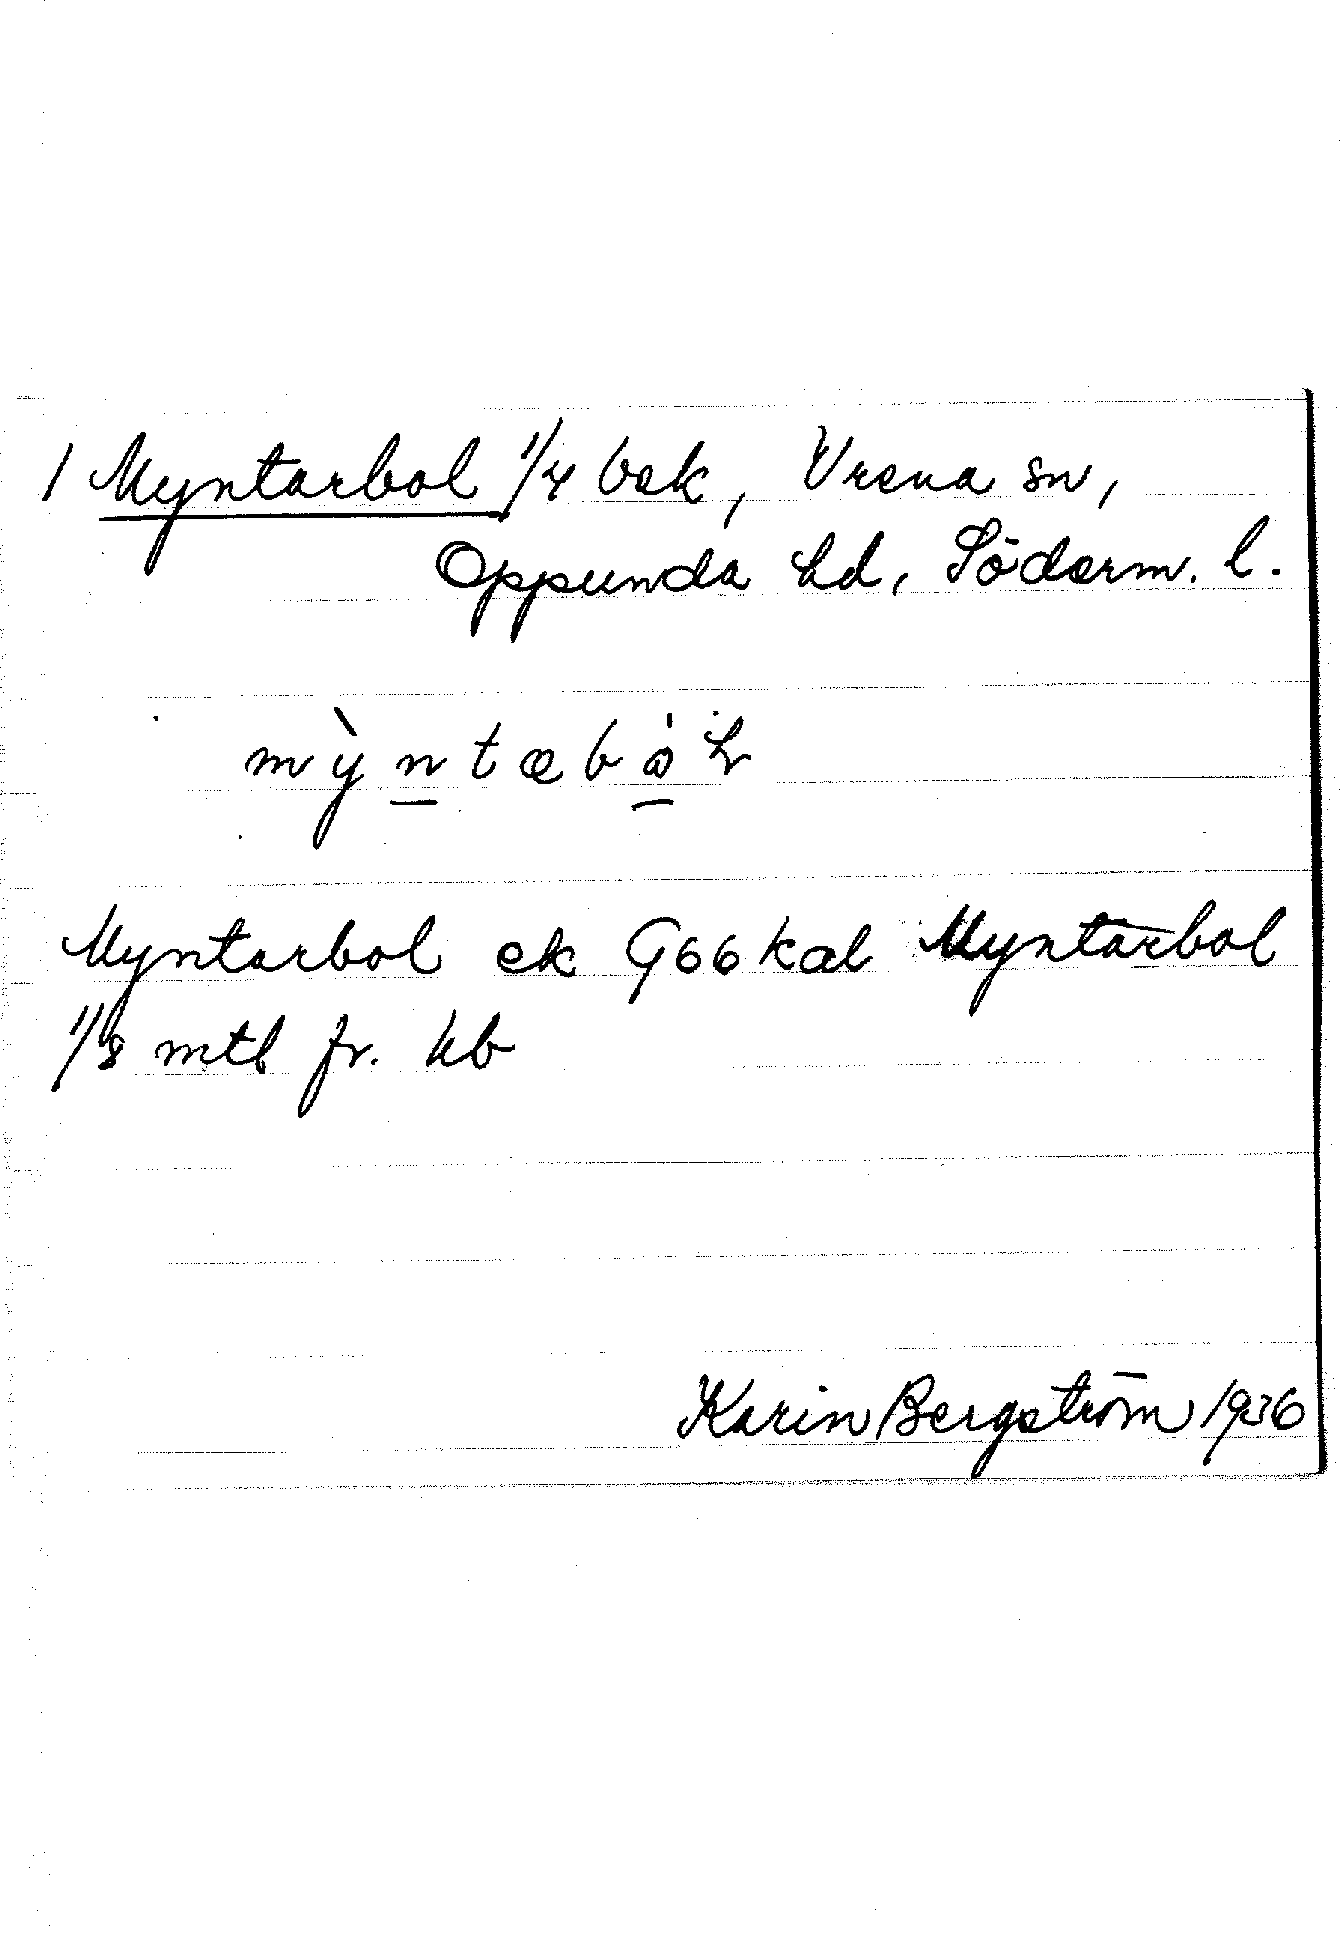 1 Myntarbol 1/4 bek, Vrena sn,
Oppunda hd, Söderm. l.
Myntarbol ek G66 kal Myntarbol
1/8 mtl fr. kb
Karin Bergström 1936